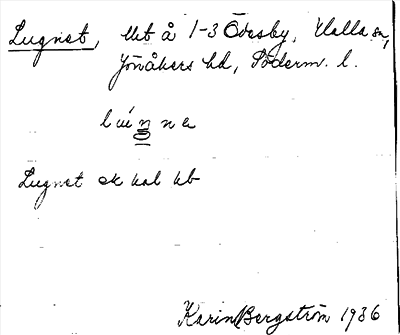 Lugnet, Utt å 1-3 Översby, Halla sn,
Jönåkers hd, Söderm. l.
Lugnet ek kal kb
Karin Bergström 1936